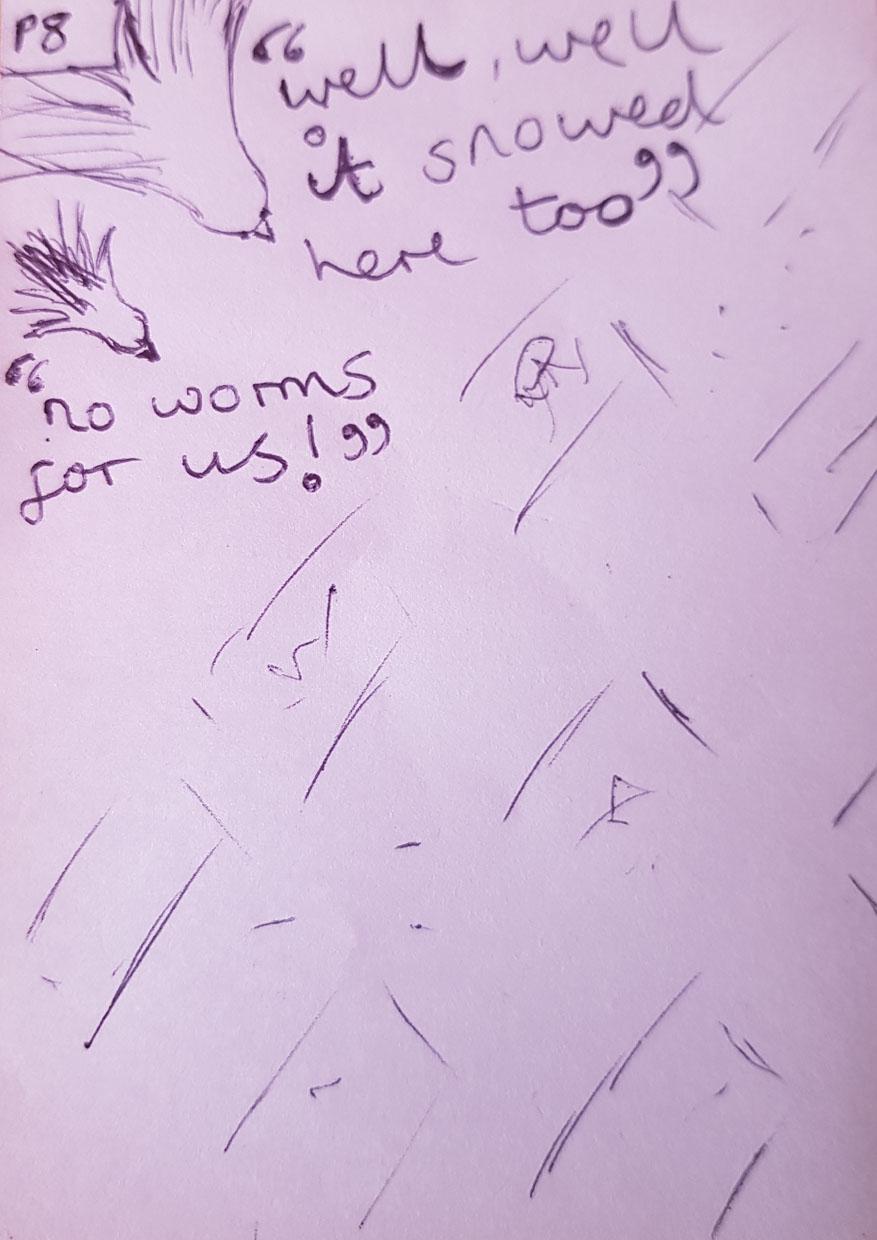 P8
“well, well
it snowed
here too”
“no worms
for us!”